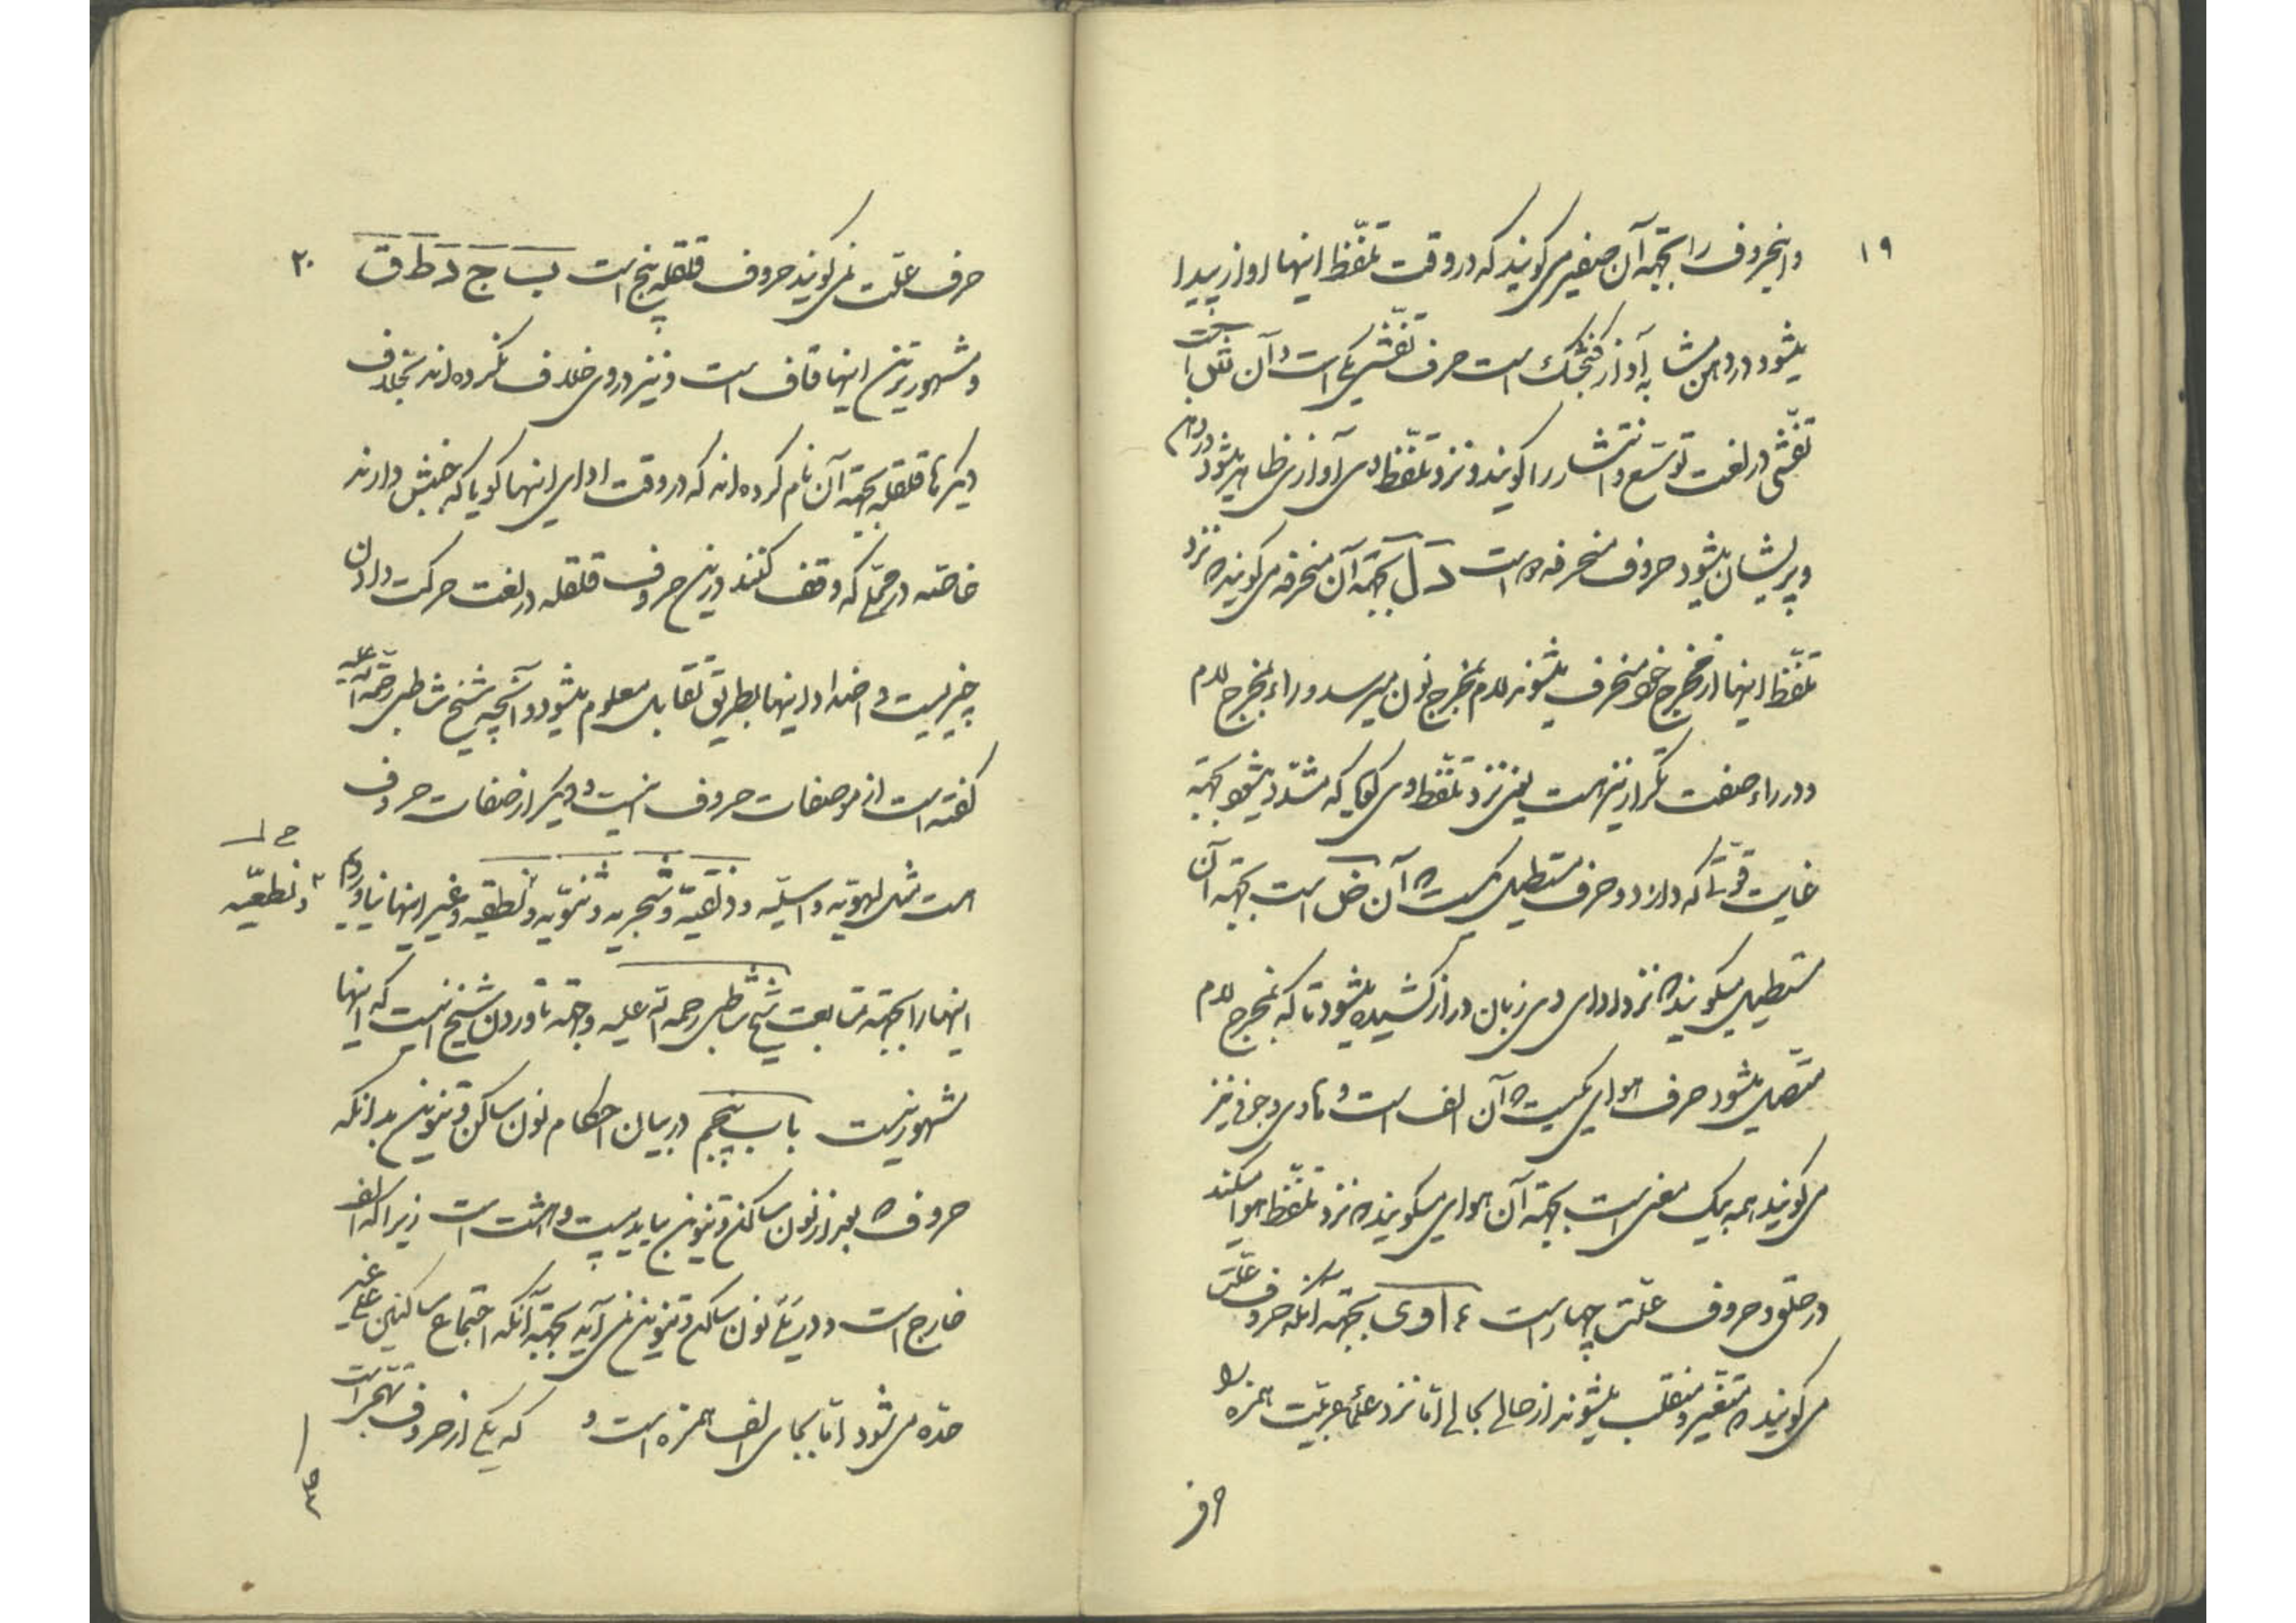 ۱۹
و اینحروف را بجهة آن صفیر می کویند که در وقت تلفّظ اینها اواز پیدا
میشود در دهن مشابه آواز کنجشک است حرف تفشّی یکی است و آن ش است
تفشّی در لغت توسّع و انتشار را کویند و نزد تلفّظ وی آوازی ظاهر میشود در دهن
و پریشان میشود حروف منحرفه است ر ل بجهة آن منحرفه می کویند که نزد
تلفّظ اینها از مخرج خود منحرف میشوند لام بمخرج نون میرسد و راء بمخرج لام
و در راء صفت تکرار نیز هست یعنی نزد تلفّظ وی کویا که مشدّد میشود بجهة
غایت قوّتی که دارد و حرف مستطیل یکیست که آن ض است بجهة آن
مستطیل میکویند که نزد ادای وی زبان دراز کشیده میشود تا که بمخرج لام
متّصل میشود حرف هوایی یکیست که آن الف است و مادی و جوفی نیز
می کویند همه بیک معنی است بجهة آن هوایی میکویند که نزد تلفّظ هوا میکند
در حلق و حروف علّت چهار است ء ا و ی بجهة آنکه حروف علّت
می کویند که متغیّر و منقلب میشوند از حالی بحالی امّا نزد علماء عربیّت همزه را
حرف
۲۰
حرف علّت نمی کویند حروف قلقله پنج است ب ج د ط ق
و مشهورترین اینها قاف است و نیز در وی خلاف نکرده اند بخلاف
دیکرها قلقله بجهة آن نام کرده اند که در وقت ادای اینها کویا که جنبش دارند
خاصّه در محلّی که وقف کنند درین حروف قلقله در لغت حرکت دادن
چیزیست و اضداد اینها بطریق تقابل معلوم میشود و آنچه شیخ شاطبی رحمة الله علیه
کفته است از صفات حروف اینست و دیکر از صفات حروف
هست مثل لهویّه و اسلیّه و ذلقیّه و شجریه و لثویّه و نطقیه و غیر اینها نیاوردیم
۲ و نطعیّه
اینها را بجهة متابعت شیخ شاطبی رحمة الله علیه و جهة ناوردن شیخ اینست که اینها
مشهور نیست باب پنجم در بیان احکام نون ساکن و تنوین بدانکه
حروف که بعد از نون ساکن و تنوین بیاید بیست و هشت است زیرا که الف
خارج است و در پی نون ساکن و تنوین نمی آید بجهة آنکه اجتماع ساکنین علی غیر
حدّه می شود امّا بجای الف همزه است و که یکی از حروف تهجّی است